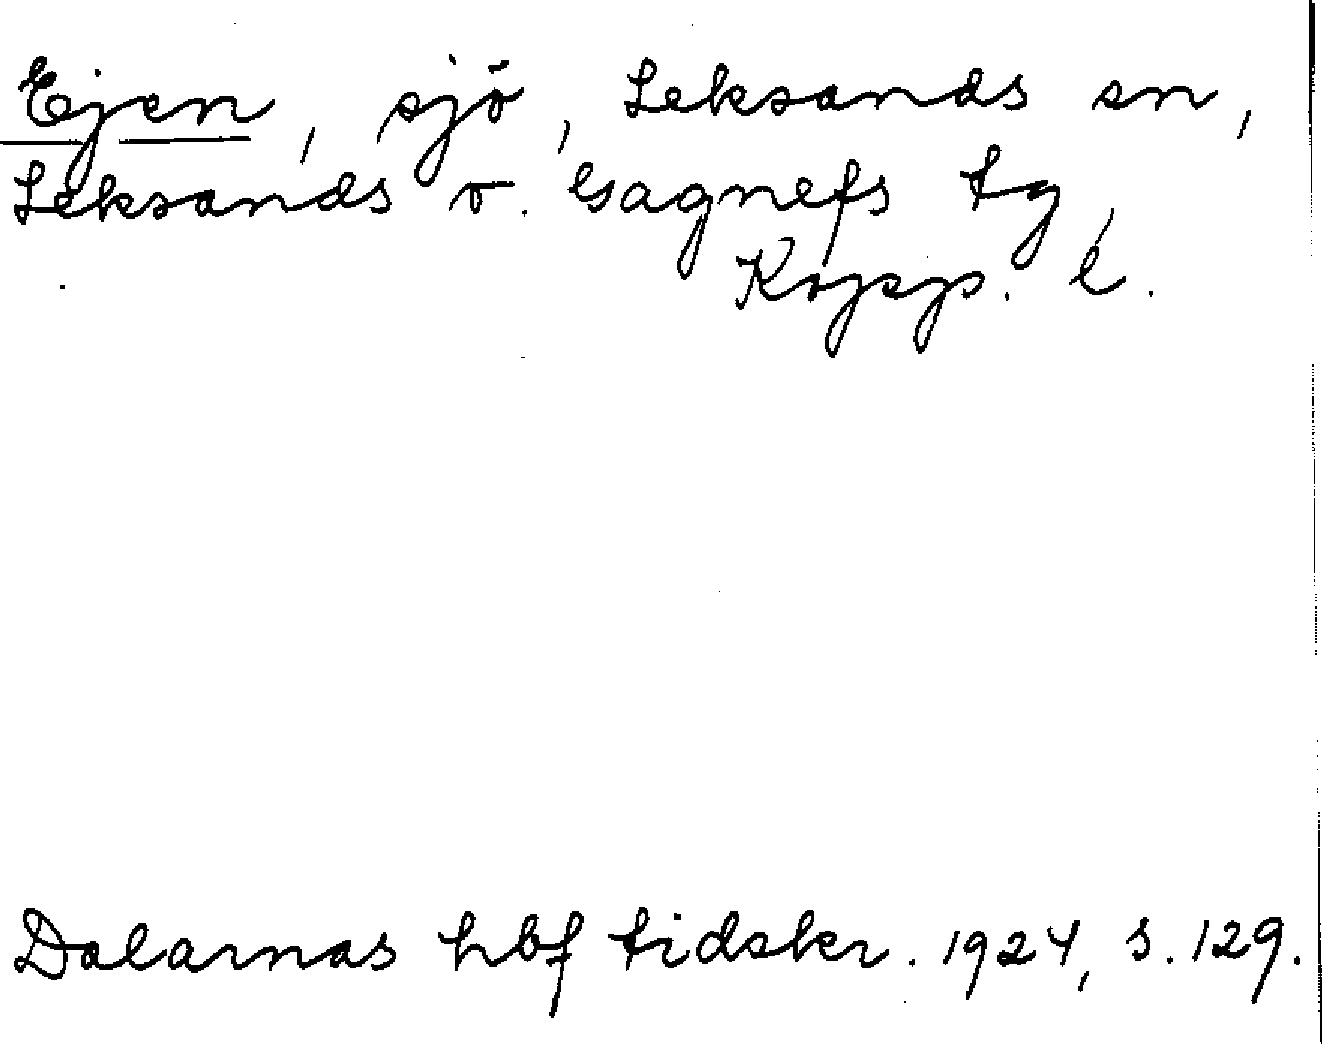 Ejen, sjö, Leksands sn,
Leksands o. Gagnefs tg,
Kopp. l.
Dalarnas hbf tidskr. 1924, s. 129.